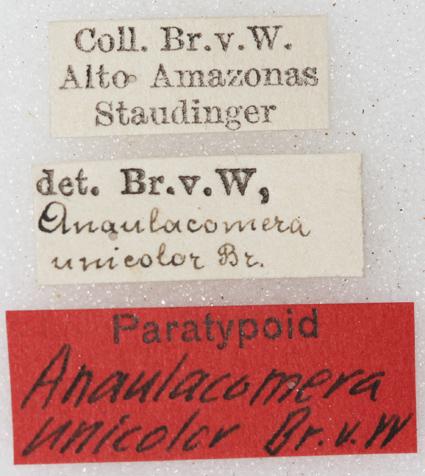 Coll. Br.v.W.
Alto Amazonas
Staudinger
det. Br.v.W,
Anaulacomera
unicolor Br.
Paratypoid
Anaulacomera
unicolor Br.v.W